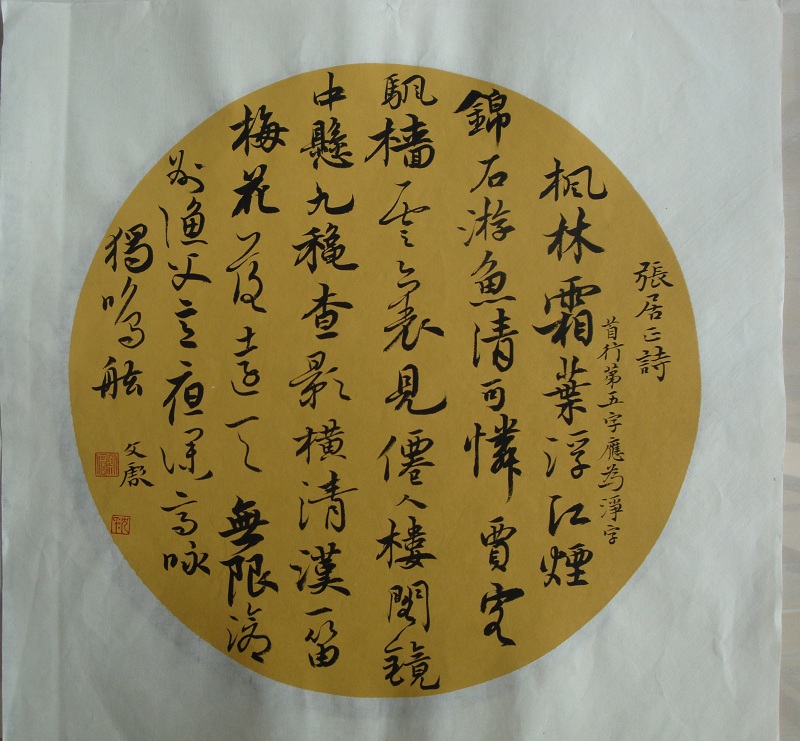 張居正詩
首行第五字應為淨字
楓林霜葉浮江煙
錦石游魚清可憐賈客
颿檣雲裏見僊人樓閣鏡
中懸九穐查影橫清漢一笛
梅花落遠天無限滄
洲漁父意夜深高咏
獨鳴舷
文